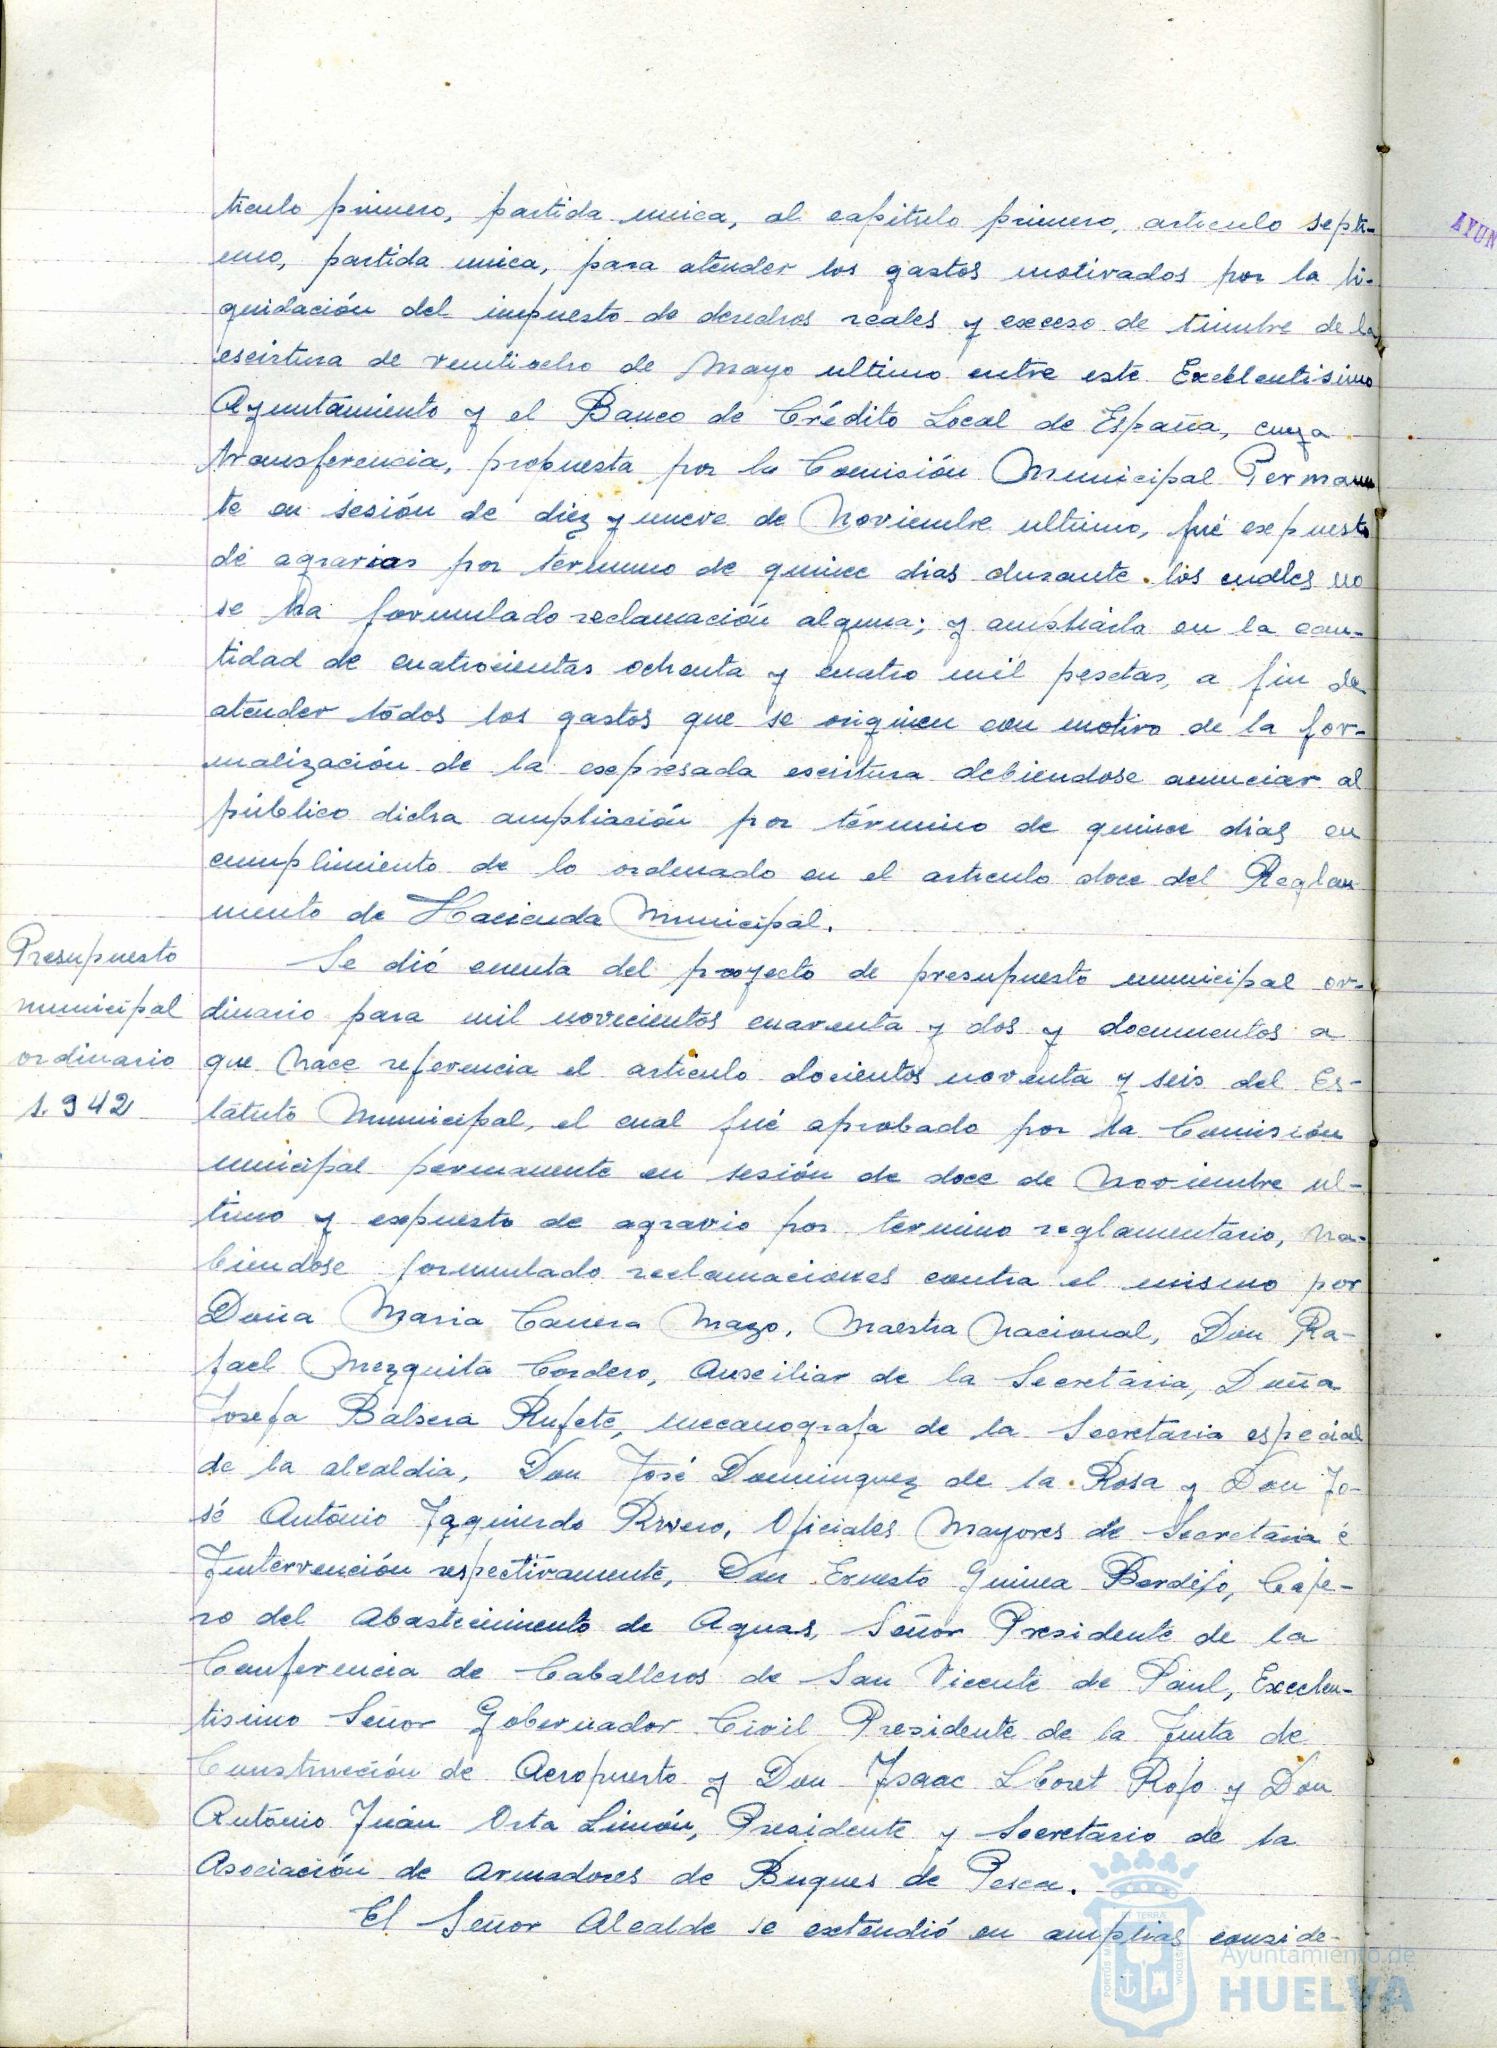 ticulo primero, partida unica, al capitulo primero, articulo septi-
mo, partida unica, para atender los gastos motivados por la li-
quidación del impuesto de derechos reales y exceso de timbre de la
escritura de ventiocho de Mayo ultimo entre este Excelentisimo
Ayuntamiento y el Banco de Crédito Local de España, cuya
transferencia, propuesta por la Comisión Municipal Permanen
te en sesión de diez y nueve de Noviembre ultimo, fué expuesta
de agravias por termino de quince dias durante los cuales no
se ha formulado reclamación alguna; y ampliarla en la can-
tidad de cuatrocientas ochenta y cuatro mil pesetas, a fin de
atender todos los gastos que se originen con motivo de la for-
malización de la expresada escritura debiendose anunciar al
público dicha ampliación por término de quince dias en
cumplimiento de lo ordenado en el articulo doce del Reglam
mento de Hacienda Municipal.
Presupuesto
municipal
ordinario
1.942
Se dió cuenta del proyecto de presupuesto municipal or-
dinario para mil novecientos cuarenta y dos y documentos a
que hace referencia el articulo docientos noventa y seis del Es-
tatuto Municipal, el cual fué aprobado por la Comisión
municipal permanente en sesión de doce de Noviembre ul-
timo y expuesto de agravio por termino reglamentario, ha-
biendose formulado reclamaciones contra el mismo por
Doña Maria Mazo, Maestra Nacional, Don Ra-
fael Mezquita Cordero, Auxiliar de la Secretaria, Doña
Josefa Balsera Rufete, mecanografa de la Secretaria especial
de la alcaldia, Don José Dominguez de la Rosa y Don Jo-
sé Antonio Izquierdo Rivero, Oficiales Mayores de Secretaria é
Intervención respectivamente, Don Ernesto Guinea Berdejo, Caje-
ro del Abastecimiento de Aguas, Señor Presidente de la
Conferencia de Caballeros de San Vicente de Paul, Excelen-
tisimo Señor Gobernador Civil Presidente de la Junta de
Construcción de Aeropuerto y Don Isaac Lloret Rojo y Don
Antonio Juán Orta Limón, Presidente y Secretario de la
Asociación de Armadores de Buques de Pesca.
El Señor Alcalde se extendió en amplias conside-
Ayuntamiento de
HUELVA
AYUN